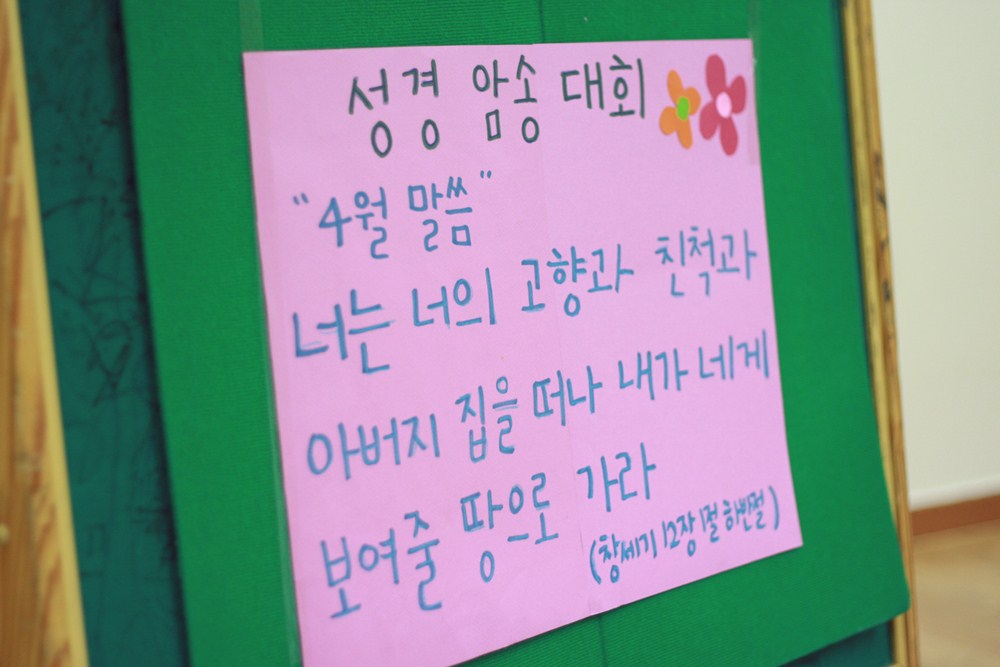 성경 암송 대회
"4월 말씀"
너는 너의 고향과 친척과
아버지 집을 떠나 내가 네게
보여줄 땅으로 가라
(창세기 12장 1절 하반절)